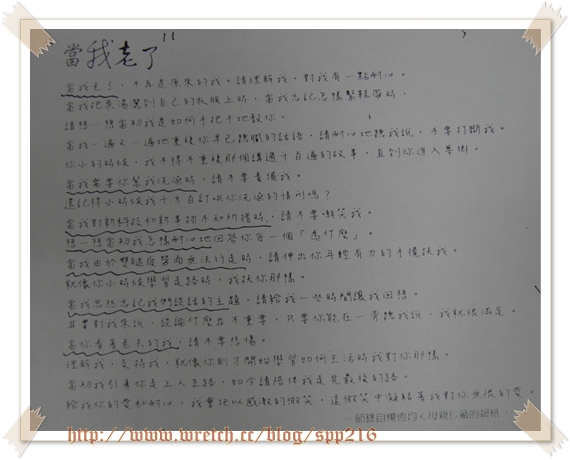 當我老了
當我老了，不再是原來的我。請理解我，對我有一點耐心。
當我把菜湯灑到自己的衣服上時，當我忘記怎樣繫鞋帶時，
請想一想當初我是如何手把手地教你。
當我一遍又一遍地重複你早已聽膩的話語，請耐心地聽我說，不要打斷我。
你小的時候，我不得不重複那個講過千百遍的故事，直到你進入夢鄉。
當我需要你幫我洗澡時，請不要責備我。
還記得小時候我千方百計哄你洗澡的情形嗎？
當我對新科技和新事物不知所措時，請不要嘲笑我。
想一想當初我怎樣耐心地回答你每一個「為什麼」。
當我由於雙腿疲勞而無法行走時，請伸出你年輕有力的手攙扶我。
就像你小時候學習走路時，我扶你那樣。
當我忽然忘記我們談話的主題，請給我一些時間讓我回想。
其實對我來說，談論什麼並不重要，只要你能在一旁聽我說，我就很滿足。
當你看著老去的我，請不要悲傷。
理解我，支持我，就像你剛才開始學習如何生活時我對你那樣。
當初我引導你走上人生路，如今請陪伴我走完最後的路。
給我你的愛和耐心，我會抱以感激的微笑，這微笑中凝結著我對你無限的愛。
http://www.wretch.cc/blog/spp216